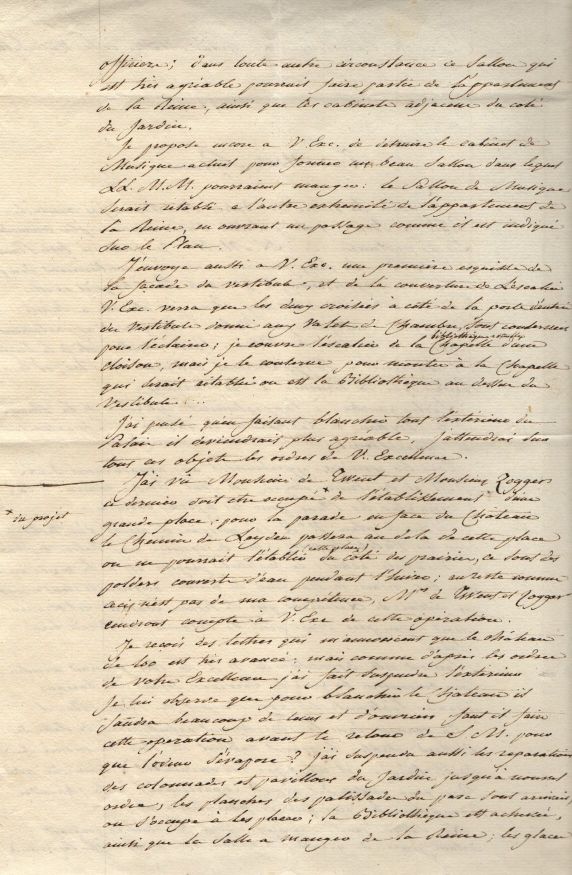 officiere; dans toute autre circonstance ce Sallon qui
est très agréable pourroit faire partie de l'appartement
de la Reine, ainsi que les cabinets adjacens du coté
du Jardin.
Je propose encore a V. Exc. de detruire le cabinet de
Musique actuel pour former un beau Sallon dans lequel
LL. M.M. pourraient manger: le Sallon de Musique
serait rétabli a l'autre extremité de l'appartement de
la Reine, en ouvrant un passage comme il est indiqué
sur le Plan.
J'envoye aussi a V. Exc. une premiere esquisse de
la façade du vestibule, et de la couverture de l'escalier
V. Exc. verra que les cinq croisées a côté de la porte d'entrée
du vestibule donne aux Valet de Chambre, sont conservées
pour l'eclairer; je couvre l'escalier de la Chapelle d'une
bibliothèque
cloison, mais je le conserve pour monter à la Chapelle
qui serait rétablie ou est la Bibliothèque au dessus du
Vestibule...
J'ai pensé qu'en faisant blanchir tout l'exterieur du
Palais il deviendrait plus agréable, j'attendrai sur
tous ces objets les ordres de V. Excellence.
J'ai vu Monsieur de Twent et Monsieur Zogger
ce dernier doit être occupé * de l'établissement d'une
* du projet
grande place, pour la parade en face du Château
le Chemin de Leyden passera au dela de cette place
on ne pourrait l'établir (cette place) du coté des prairies, ce sont des
polders couverts d'eau pendant l'hiver; au reste comme
ceci n'est pas de ma compétence, Mrs de Twent et Zogger
rendront compte a V. Exc de cette operation.
Je reçois des lettres qui m'annoncent que le château
de Loo est très avancé: mais comme d'après les ordres
de votre Excellence j'ai fait suspendre l'exterieur
Je lui observe que pour blanchir le Chateau il
faudra beaucoup de tems et d'ouvriers faut il faire
cette operation avant le retour de S. M. pour
que l'odeur s'évapore? j'ai suspendu aussi les reparations
des colonnades et pavillons du Jardin jusqu'a nouvel
ordre, les planches des palissades du parc sont arrivées,
on s'occupe à les placer; la Bibliothèque est achevée,
ainsi que la Salle a manger de la Reine; les glaces